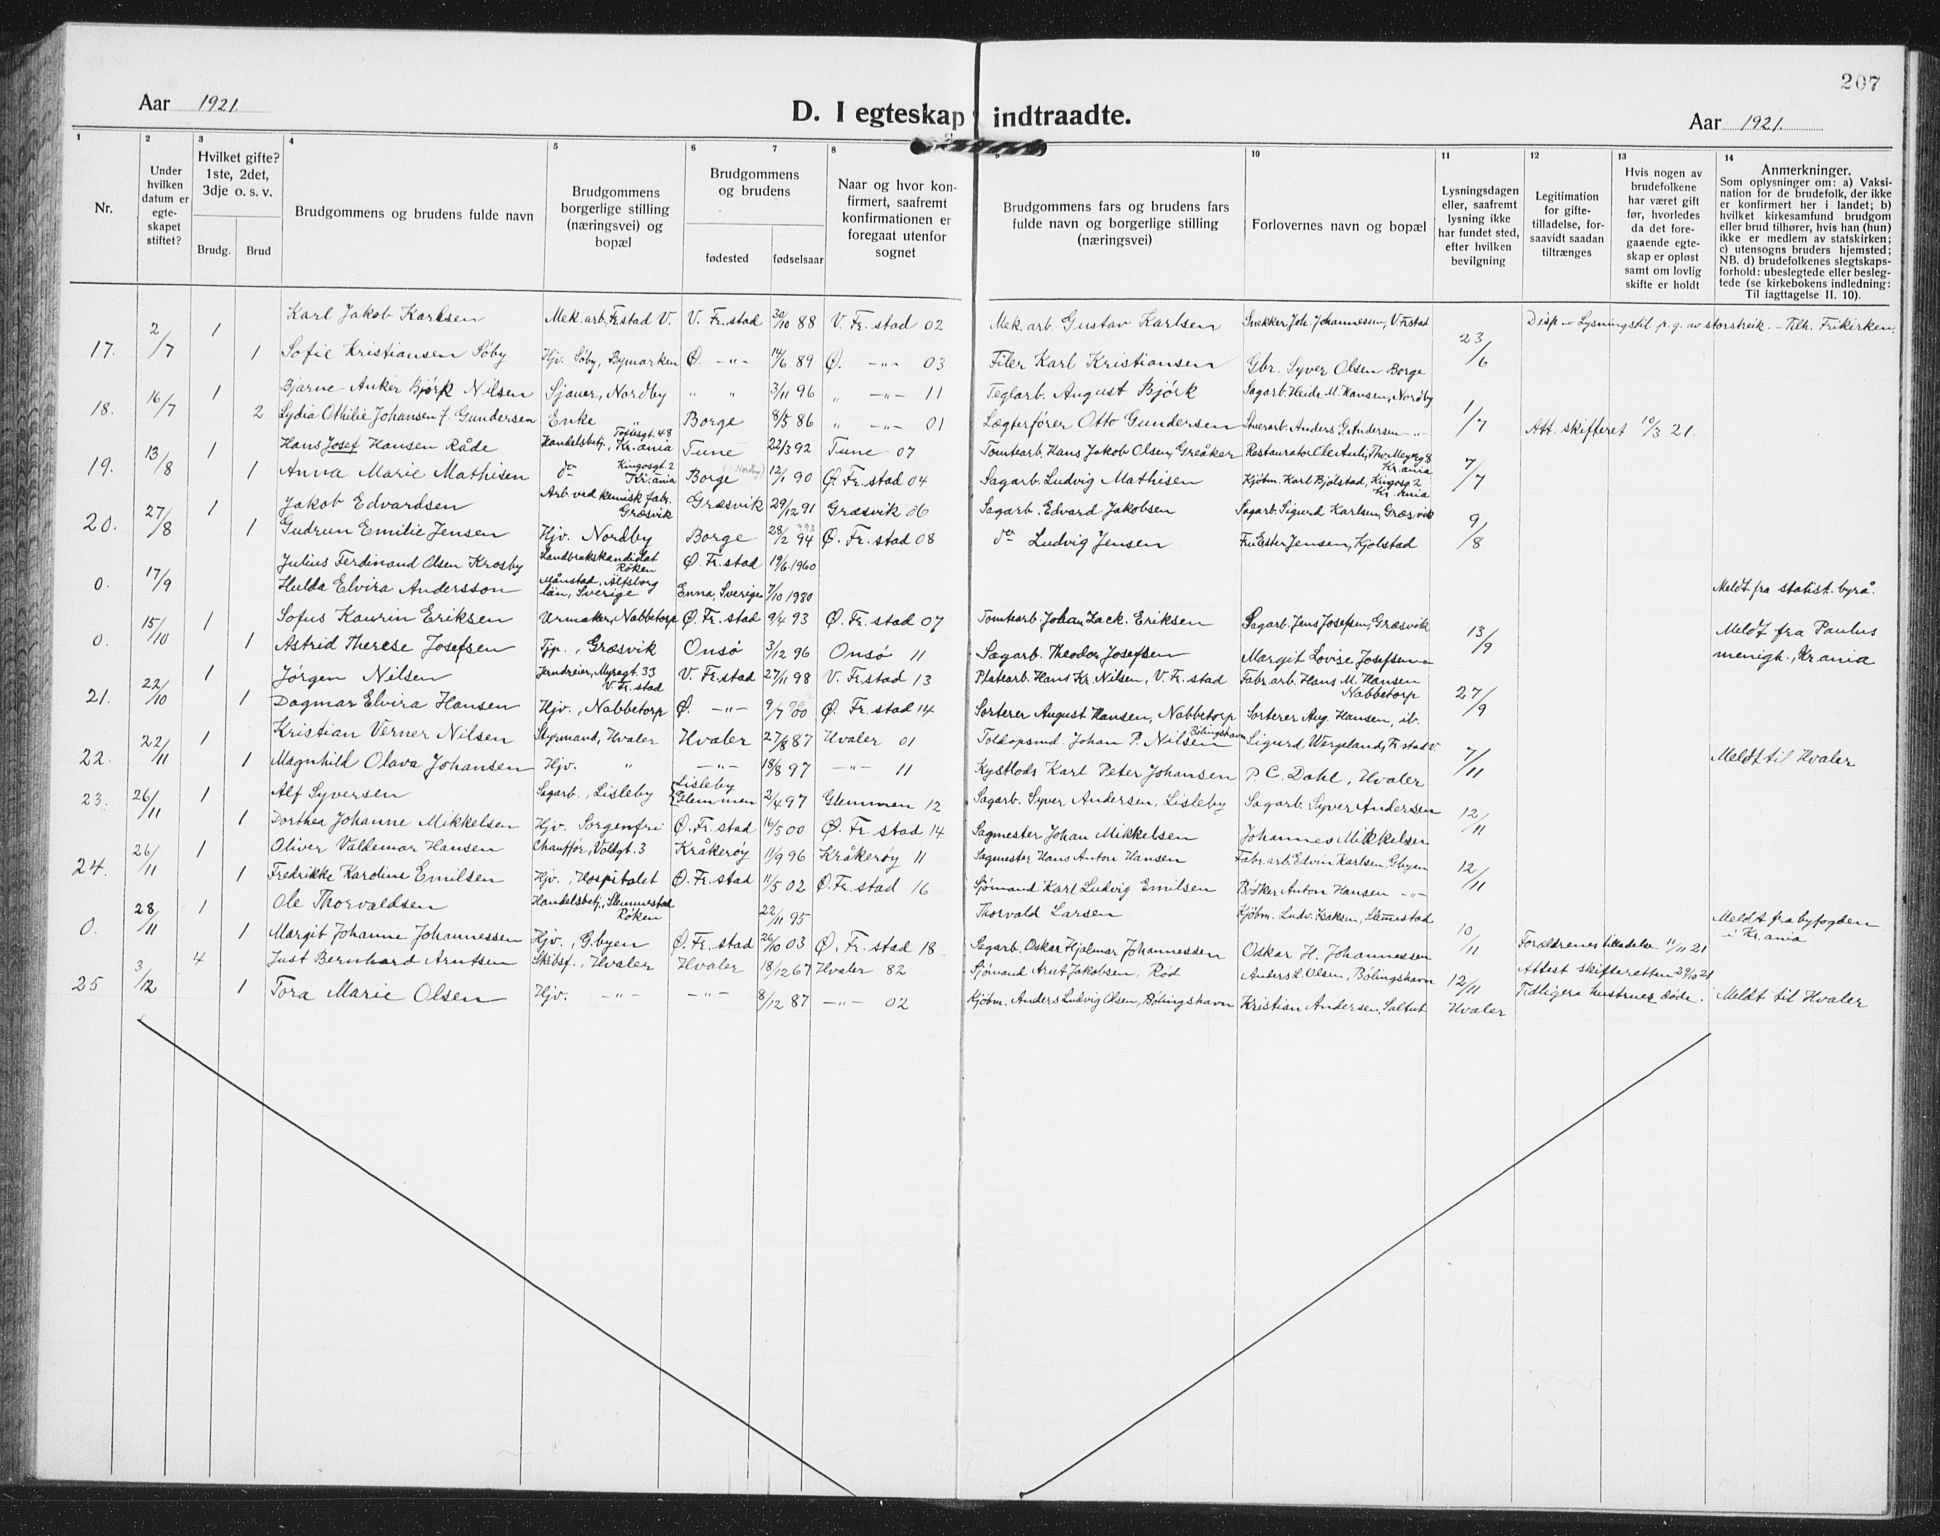 207
Aar 1921.
D. I egteskap indtraadte.
Aar 1921.
1 2 3 4 5 6 7 8 10 11 12 13 14
Nr.
Under hvilken datum er egte-skapet stiftet?
Hvilket gifte? 1ste, 2det, 3dje o. s. v.
Brudg. Brud
Brudgommens og brudens fulde navn
Brudgommens borgerlige stilling (næringsvei) og bopæl
Brudgommens og brudens
fødested fødselsaar
Naar og hvor kon-firmert, saafremt konfirmationen er foregaat utenfor sognet
Brudgommens fars og brudens fars fulde navn og borgerlige stilling (næringsvei)
Forlovernes navn og bopæl
Lysningsdagen eller, saafremt lysning ikke har fundet sted, efter hvilken bevilgning
Legitimation for gifte-tilladelse, for-saavidt saadan tiltrænges
Hvis nogen av brudefolkene har været gift før, hvorledes da det fore-gaaende egte-skap er opløst samt om lovlig skifte er holdt
Anmerkninger.
Som oplysninger om: a) Vaksi-nation for de brudefolk, der ikke er konfirmert her i landet; b) hvilket kirkesamfund brudgom eller brud tilhører, hvis han (hun) ikke er medlem av statskirken; c) utensogns bruders hjemsted; NB. d) brudefolkenes slegtskaps-forhold: ubeslegtede eller besleg-tede (se kirkebokens indledning: Til iagttagelse II. 10).
17. 2/7 1 Karl Jakob Karlsen Mek. arb. Fr.stad V. V. Fr. stad 30/10 88 V. Fr. stad 02 Mek. arb. Gustav Karlsen Snekker Joh. Johannessen, V. Frstad 23/6 Disp. Lysningstil p. g. av storstreik. – Tilh. Frikirken.
1 Sofie Kristiansen Söby Hjv. Søby, Bymarken Ø. -"- 14/6 89 Ø. -"- 03 Filer Karl Kristiansen Gbr. Syver Olsen Borge
18. 16/7 1 Bjarne Anker Björk Nilsen Sjauer, Nordby " " 3/11 96 " -"- 11 Teglarb. August Björk Sagarb. Heide M. Hansen, Nordby 1/7
2 Lydia Othilie Johansen f. Gundersen Enke " Borge 8/5 86 " -"- 01 Lægterfører Otto Gundersen Stuerarb. Anders G. Andersen -"- Att. skifteret 10/3 21.
19. 13/8 1 Hans Josef Hansen Råde Handelsbetj., Toftesgt. 48 Kr.ania Tune 22/3 92 Tune 07 Tomtearb. Hans Jakob Olsen, Greåker Thv. Meyersg 8 Kr.ania 7/7
1 Anna Marie Mathisen do Kingosgt. 2 Kr.ania Borge (Nordby) 12/1 90 Ø. Fr. stad 04 Sagarb. Ludvig Mathisen Kjöbm. Karl Bjolstad, Kingosg. 2 Kr.ania
20. 27/8 1 Jakob Edvardsen Arb. ved kemisk fabr. Græsvik Græsvik 29/12 91 Græsvik 06 Sagarb. Edvard Jakobsen Sagarb. Sigurd Karlsen, Græsvik 9/8
1 Gudrun Emilie Jensen Hjv. Nordby Borge 28/2 94 Ø. Fr. stad 08 do Ludvig Jensen Frk Ester Jensen, Kjolstad
0. 17/9 Julius Ferdinand Olsen Krosby Landbrukskandidat Røken Ø. Fr. stad 19/6 1960
Hulda Elvira Andersson Månstad, Älfsborg län, Sverige Enna, Sverige 7/10 1980 Meldt fra statist. byrå.
0. 15/10 1 Sofus Kaurin Eriksen Urmaker, Nabbetorp Ø. Fr. stad 9/4 93 Ø. Fr. stad 07 Tomtearb. Johan Zack. Eriksen Sagarb. Jens Josefsen, Græsvik 13/9 Meldt fra Paulus
1 Astrid Therese Josefsen Tjp., Græsvik Onsö 3/12 96 Onsö 11 Sagarb. Theodor Josefsen Margit Lovise Josefsen menigh., Kr.ania
21. 22/10 1 Jørgen Nilsen Jerndreier, Myragt. 33 V. Fr. stad V. Fr. stad 27/11 98 V. Fr. stad 13 Platearb. Hans Kr. Nilsen, V. Fr. stad Fabr. arb. Hans M. Hansen Nabbetorp 27/9
1 Dagmar Elvira Hansen Hjv., Nabbetorp Ø. -"- 9/7 00 Ø. Fr. stad 14 Sorterer August Hansen, Nabbetorp Sorterer Aug. Hansen, ib.
22. 22/11 1 Kristian Verner Nilsen Styrmand, Hvaler Hvaler 27/8 87 Hvaler 01 Toldopsmd. Johan P. Nilsen Bölingshavn Sigurd Wergeland, Fr. stad V 7/11 Meldt til Hvaler
1 Magnhild Olava Johansen Hjv. " -"- 18/8 97 -"- 11 Kystlods Karl Peter Johansen P. C. Dahl, Hvaler
23. 26/11 1 Alf Syversen Sagarb., Lisleby Lisleby Glemmen 2/4 97 Glemmen 12 Sagarb. Syver Andersen, Lisleby Sagarb. Syver Andersen 12/11
1 Dorthea Johanne Mikkelsen Hjv. Sorgenfri Ø. Fr. stad 16/5 00 Ø. Fr. stad 14 Sagmester Johan Mikkelsen Johannes Mikkelsen
24. 26/11 1 Oliver Valdemar Hansen Chauffør, Voldgt. 3 Kråkerøy 11/9 96 Kråkerøy 11 Sagmester Hans Anton Hansen Fabr. arb. Edvin Karlsen, Gbyen 12/11
1 Fredrikke Karoline Emilsen Hjv., Hospitalet Ø. Fr. stad 11/5 02 Ø. Fr. stad 16 Sjömand Karl Ludvig Emilsen Bödker Anton Hansen -"-
0. 28/11 1 Ole Thorvaldsen Handelsbetj., Slemmestad Røken 22/11 95 Thorvald Larsen Kjöbm. Ludv. Isaksen, Slemestad 10/11 Meldt fra byfogden i Kr.ania
1 Margit Johanne Johannessen Hjv., G.byen Ø. Fr. stad 26/10 03 Ø. Fr. stad 18 Sagarb. Oskar Hjalmar Johannessen Oskar H. Johannessen Forældrenes tilladelse 11/11 21
25 3/12 4 Just Bernhard Arntsen Skibsf., Hvaler Hvaler 18/12 67 Hvaler 82 Sjömand Arnt Jakobsen, Röd Anders L. Olsen, Bölingshavn 12/11 Attest skifteretten 29/10 21
1 Tora Marie Olsen Hjv. -"- -"- 8/12 87 -"- 02 Kjöbm. Anders Ludvig Olsen, Bölingshavn Kristian Andersen, Saltut Hvaler Tidligera hustruer döde. Meldt til Hvaler